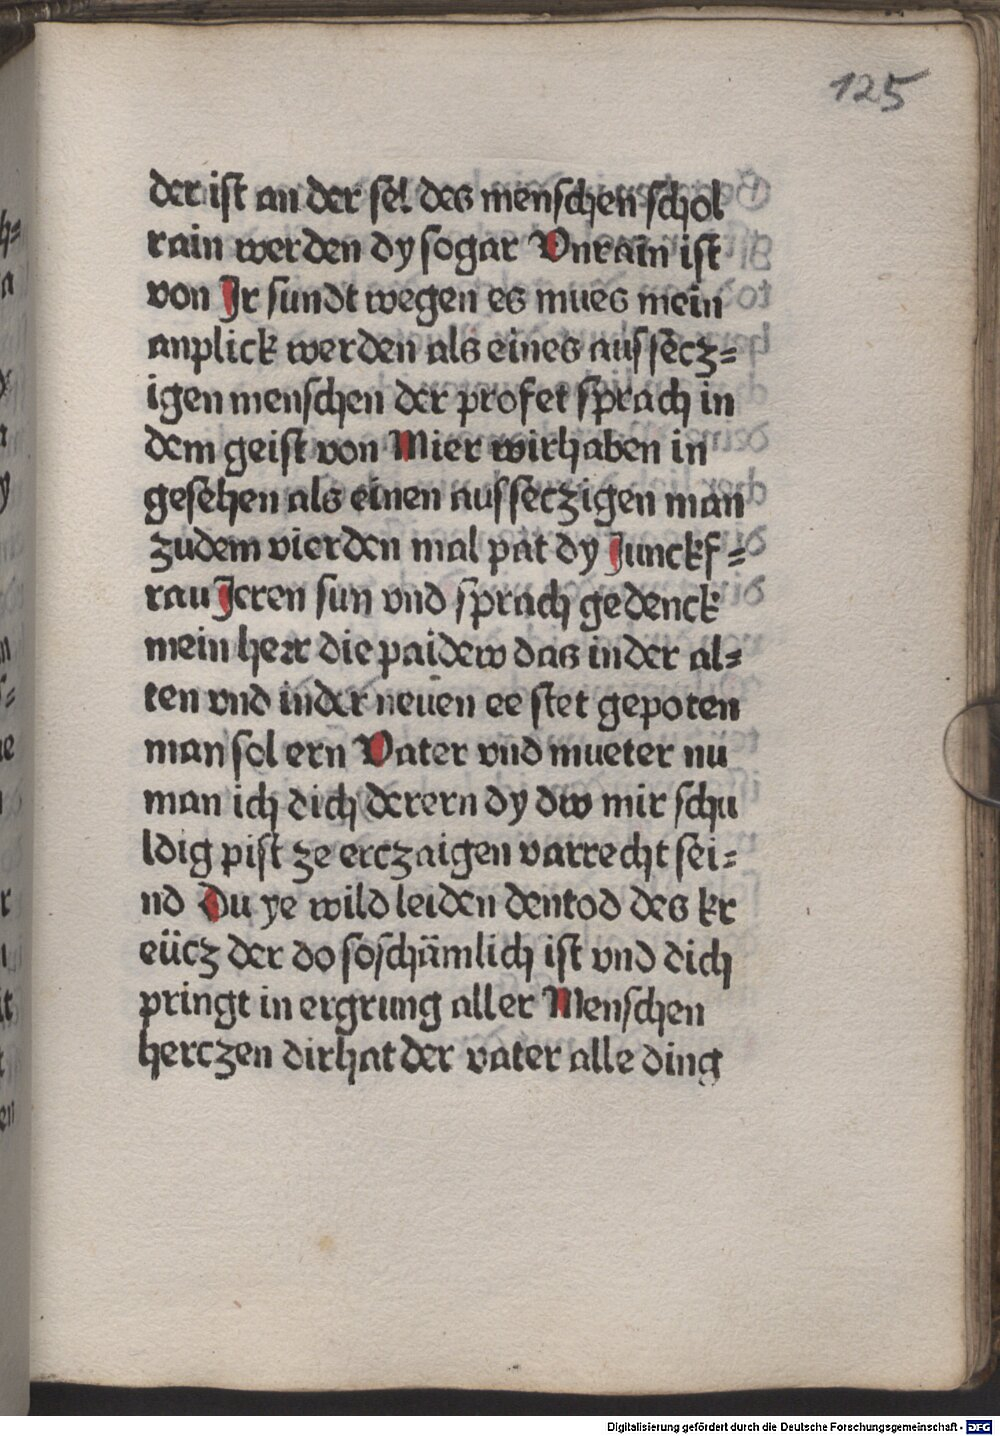 125
der ist an der sel des menschen schol
rain werden dy sogar Vnrain ist
von Ir sundt wegen es mues mein
anplick werden als eines aussecz=
igen menschen der profet sprach in
dem geist von Mier wir haben in
gesehen als einenausseczigen man
zudem vierden mal pat dy Junckf=
rau Jeren sun vnd sprach gedenck
mein herr die paidew das in der al=
ten vnd in der neuen ee stet gepoten
man sol ern Vater vnd mueter nu
man ich dich der ern dy dw mir schu
ldig pist ze erczaigen var recht sei=
nd Du ye wild leiden den tod des kr
eücz der do so schämlich ist vnd dich
pringt in ergrung aller Menschen
herczen dir hat der vater alle ding
Digitalisierung gefördert durch die Deutsche Forschungsgemeinschaft - DFG